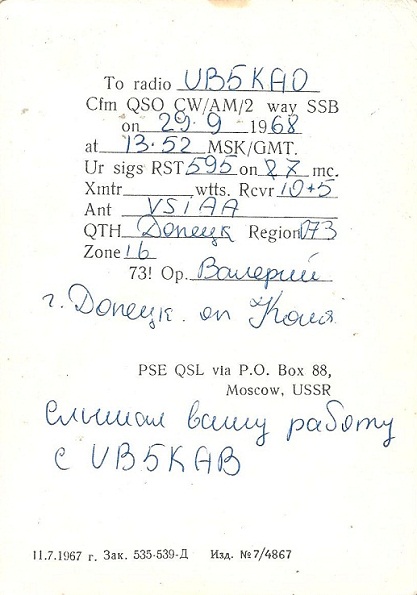 To radio UB5KAO
Cfm QSO CW/AM/2 way SSB
on 29.9 1968
at 13.52 MSK/GMT.
Ur sigs RST 595 on 27 mc.
Xmtr wtts. Rcvr 10+5
Ant VS1AA
QTH Донецк Region 073
Zone 16
73! Op. Валерий
г. Донецк. оп Коля
PSE QSL via P.O. Box 88,
Moscow, USSR
слышал вашу работу
с UB5KAB
11.7.1967 г. Зак. 535-539-Д Изд. №7/4867